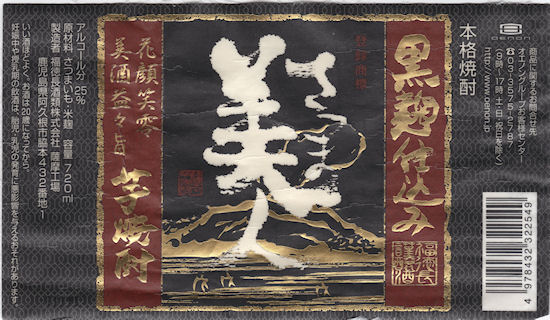 OENON
商品に関するお問い合わせ先
オエノングループお客様センター
(9時~17時 土・日・祝日を除く)
http://www.oenon.jp
本格焼酎
黒麹仕込み
登録商標
さつま
美人
花顔笑零
美酒益々旨
芋焼酎
アルコール分 25%
原材料 さつまいも・米麹 容量 720ml
製造者 福徳長酒類株式会社 薩摩工場
鹿児島県阿久根市脇本432番地1
いい酒ほどよく。お酒は20歳になってから。
妊娠中や授乳期の飲酒は、胎児・乳児の発育に悪影響を与えるおそれがあります。
福徳長
酒類
4 978432 322549